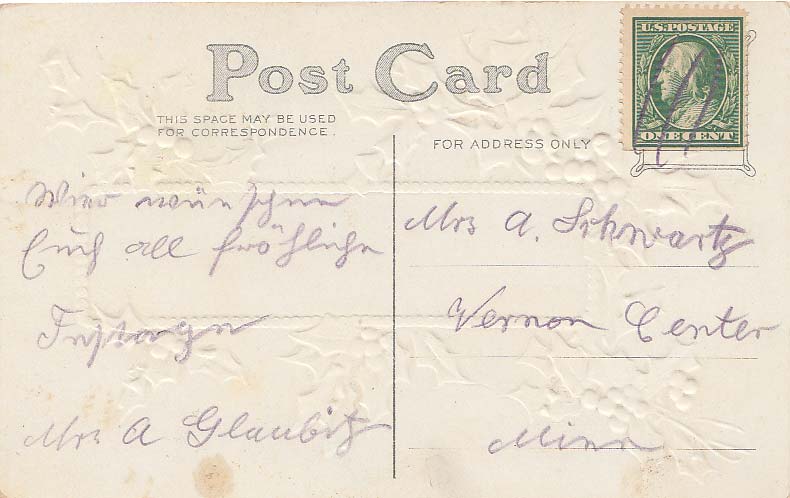 Post Card
THIS SPACE MAY BE USED
FOR CORRESPONDENCE.
FOR ADDRESS ONLY
U.S. POSTAGE
ONE CENT
Wier wünschen
Euch all fröhliche
Festage
Mrs A Glaubitz
Mrs A. Schwartz
Vernon Center
Minn